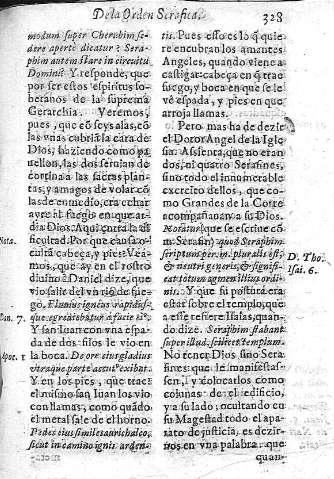 De la Orden Serafica.
328
modum super Cherubim se-
dere apertè dicatur? Sera-
phim autem stare in circuitu
Domini? Y responde, que
por ser estos espiritus so-
beranos de la suprema
Gerarchia. Veremos,
pues, que cõ seys alas, cõ
las vnas cubriã la cara de
Dios, haziendo como pa
uellon, las dos seruian de
cortina a las sacras plan-
tas, y amagos de volar cõ
las de en medio, era echar
ayre al fuego en que ar-
dia Dios. Aqui entra la di
ficultad. Por que causa o-
culta cabeça, y pies? Vea-
mos, que ay en el rostro
diuino? Daniel dize, que
vio salir del vn rio de fue-
go, Fluuius igneus rapidus-
que egrediebatur à facie eius.
Y san Iuan con vna espa-
da de dos filos le vio en
la boca. De ore eius gladius
vtraque parte acutus exibat.
Y en los pies, que trae?
el mismo san Iuan los vio
con llamas, como quãdo
el metal sale de el horno.
Pedes eius similes aurichalco,
sicut in camino ignis arden-
Nota.
Dan. 7.
Apoc. 1
tis. Pues esso es lo q̃ quie
re encubran los amantes
Angeles, quando viene a
castigar: cabeça en q̃ trae
fuego, y boca en que se le
vè espada, y pies en que
arroja llamas.
Pero mas ha de dezir
el Dotor Angel de la Igle
sia. Assienta, que no eran
dos, ni quatro Serafines,
sino todo el innumerable
exercito dellos, que co-
mo Grandes de la Corte
acompañauan a su Dios.
Notatur (que se escriue cõ
m Serafin) quod Seraphim
scriptum per m. pluralis est;
& neutri generis, & signifi-
cat totum agmen illius ordi-
nis. Y que su postura era
estar sobre el templo, que
a esse refiere Isaias, quan-
do dize. Seraphim stabant
super illud, scilicet templum.
No tener Dios sino Sera-
fines que le manifestas-
sen, y colocarlos como
colunas de el edificio,
y a su lado; ocultando en
su Magestad todo el apa-
rato de justicia, es dezir-
nos en vna palabra, que
D. Tho.
Isai. 6.
quan-